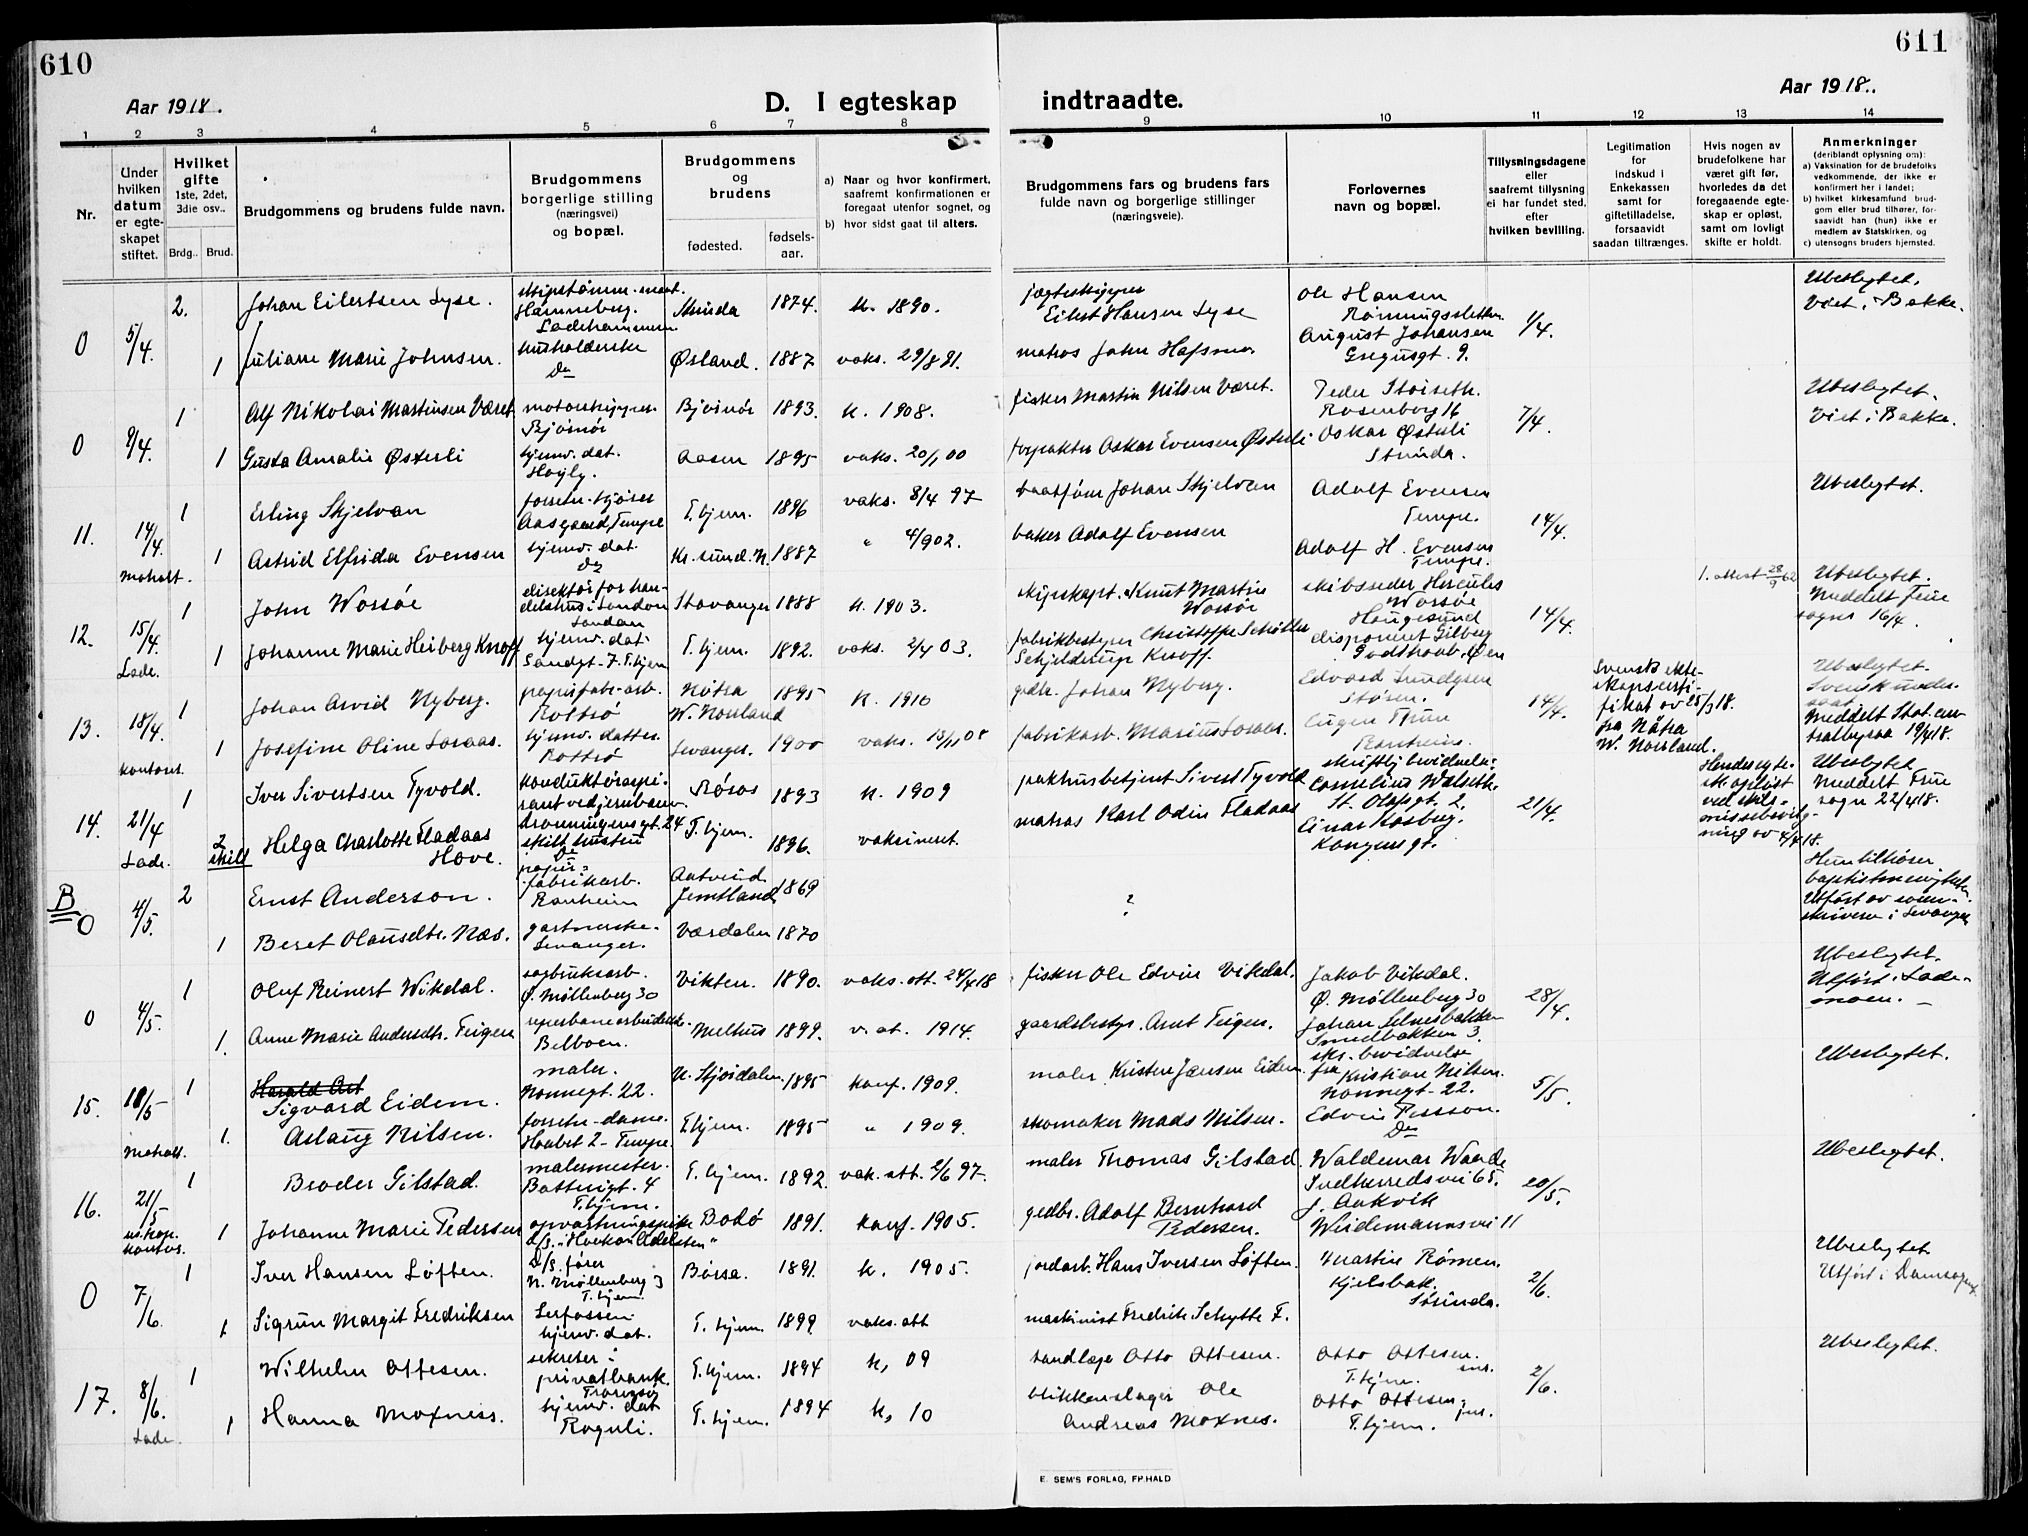 610
611
Aar 1918.
D. I egteskap
indtraadte.
Aar 1918.
1 2 3 4 5 6 7 8 9 10 11 12 13 14
Nr.
Under hvilken datum er egteskapet stiftet.
Hvilket gifte 1ste, 2det, 3die osv..
Brdg.. Brud.
Brudgommens og brudens fulde navn.
Brudgommens borgerlige stilling (næringsvei) og bopæl.
Brudgommens og brudens
fødested.
fødsels-aar.
a) Naar og hvor konfirmert, saafremt konfirmationen er foregaat utenfor sognet, og
b) hvor sidst gaat til alters.
Brudgommens fars og brudens fars fulde navn og borgerlige stillinger (næringsveie).
Forlovernes navn og bopæl.
Tillysningsdagene eller saafremt tillysning ei har fundet sted, efter hvilken bevilling.
Legitimation for indskud i Enkekassen samt for giftetilladelse, forsaavidt saadan tiltrænges.
Hvis nogen av brudefolkene har været gift før, hvorledes da det foregaaende egteskap er opløst, samt om lovligt skifte er holdt.
Anmerkninger (deriblandt oplysning om):
a) Vaksination for de brudefolks vedkommende, der ikke er konfirmert her i landet;
b) hvilket kirkesamfund brudgom eller brud tilhører, forsaavidt han (hun) ikke er medlem av Statskirken, og
c) utensogns bruders hjemsted.
0 5/4. 2. Johan Eilertsen Lyse. Hammeberg. Ladehammeren Strinda 1874. k. 1890. Eilert Hansen Lyse Ole Hansen Rønningsletten 1/4. Ubeslegtet. Viet i Bakke.
1 Juliane Marie Johnsen. husholderske Do Ørland. 1887 vaks. 29/8 91. matros John Hafsmo August Johansen Gregusgt. 9.
0 9/4. 1 Alf Nikolai Martinsen Været motorskipper. Bjørnør Bjørnør 1893. k. 1908. fisker Martin Nilsen Været. Peder Støiseth. Rosenborg 16 7/4. Ubeslegtet. Viet i Bakke.
1 Gusta Amalie Østerli hjemv. dat. Aasen 1895 vaks. 20/1 00 forpakter Oskar Evensen Østerli Oskar Østerli Strinda.
11. 14/4. Moholt. 1 Erling Skjelvan Aasgaard, Tempe T.hjem. 1896 vaks. 8/4 97 Johan Skjelvan Adolf Evensen Tempe. 14/4. Ubeslegtet.
1 Astrid Elfrida Evensen hjemv. dat. Do Kr.sund. N. 1887 " 4/902. baker Adolf Evensen Adolf H. Evensen Tempe.
12. 15/4. Lade. 1 John Worsøe direktør for handelshus i London London Stavanger 1888 k. 1903. skipskapt. Knut Martin Worsøe skibsreder Hercules Worsøe Haugesund 14/4. 1. attest 28/9 62 Ubeslegtet. Meddelt Frue sogn 16/4.
1 Johanne Marie Heiberg Knoff hjemv. dat. Sandgt. 7. T.hjem T.hjem. 1892. vaks. 2/4 03. fabrikbestyrer Christoffer Schøller Schjelderup Knoff. disponent Gilberg Godthaab, Øen
13. 18/4. kontoret. 1 Johan Arvid Nyberg. papirfabr.arb. Rotsrø Nätra W. Norrland 1895 k. 1910 Johan Nyberg. Edvard Lundgren Støren. 14/4. Svensk ekteskapscertifikat av 25/3 18. fra Nätra W. Norrland. Ubeslegtet. Svensk undersaat. Meddelt Stat. centralbyraa 19/4 18.
1 Josefine Oline Loraas. hjemv. datter. Rotsrø Levanger. 1900 vaks. 13/11 08 fabrikarb. Marius Loraas. Eugen Thun Ranheim.
14. 21/4 Lade. 1 Iver Sivertsen Tyvold. konduktøraspirant ved jernbanen. Dronningensgt. 24 Røros 1893 k. 1909 pakhusbetjent Sivert Tyvold skriftlig bevidnelse: Cornelius Walseth St. Olafsgt. 2. 21/4. Hendes egtesk. opløst ved skilsmissebevilgning av 4/4 18. Ubeslegtet Meddelt Frue sogn 22/4 18.
2 skilt Helga Charlotte Fladaas Hove. skilt hustru Do T.hjem. 1896. vaksineret. matros Karl Odin Fladaas Einar Kosberg. Kongensgt.
B 0 4/5. 2 Ernst Anderson. papirfabrikarb. Ranheim Jemtland 1869 ? Hun tilhører baptistmenigheten. Utført av sorenskriveren i Levanger
1 Beret Olausdtr. Næs. gartnerske. Levanger. Værdalen 1870
0 4/5. 1 Oluf Reinert Wikdal. sagbruksarb. Ø. Møllenberg 30 Vikten. 1890. vaks. att. 24/4 18 fisker Ole Edvin Vikdal. Jakob Vikdal. Ø. Møllenberg 30 28/4. Ubeslegtet. Utført i Lademoen. —
1. Anne Marie Andersdtr. Teigen reperbanearbeiderske Belboen. Melhus 1899. v. at. 1914. gaardsbestyr. Arnt Teigen. Johan Selnesbakken Smedbakken 3.
15. 10/5 Moholt. 1 Sigvard Eidem. maler. Nonnegt. 22. N. Stjørdalen. 1895 konf. 1909. maler Kristen Jensen Eidem skr. bevidnelse fra Kristian Nilsen. Nonnegt. 22. 5/5. Ubeslegtet.
1. Aslaug Nilsen. forretn.-dame. Tempe T.hjem. 1895 " 1909. skomaker Mads Nilsen. Edvin Persson. Do
16. 21/5 kontor. 1 Broder Gilstad. malermester. Batterigt. 4 T.hjem. T.hjem. 1892. vak. att. 2/6 97. maler Thomas Gilstad. Waldemar Waade Indherredsvei 65. 20/5. Ubeslegtet.
1 Johanne Marie Pedersen opvartningspike D/S. "Haakon Adelsten" Bodø 1891. konf. 1905. gedbr. Adolf Bernhard Pedersen. J. Aakvik Weidemannsvei 11
0 7/6. 1 Iver Hansen Løften. D/S. fører N. Møllenberg 3 T.hjem. Børsa. 1891. k. 1905. jordarb. Hans Iversen Løften. Martin Rømen. Kjelsbak. Strinda. 2/6. Ubeslegtet Utført i Domsogn.
1 Sigrun Margit Fredriksen Lerfossen. hjemv. dat. T.hjem. 1899. vaks. att maskinist Fredrik Schytte F.
17. 8/6. Lade. 1 Wilhelm Ottesen. sekretær i privatbank. Tromsø T.hjem. 1894 k. 09 tandlæge Otto Ottesen. Otto Ottesen. sen. T.hjem. 2/6. Ubeslegtet.
1 Hanna Moxness. hjemv. dat Rognli. T.hjem. 1894 k. 10 blikkenslager Ole Andreas Moxnes. Otto Ottesen. jun. T.hjem.
E. SEM'S FORLAG, FR.HALD